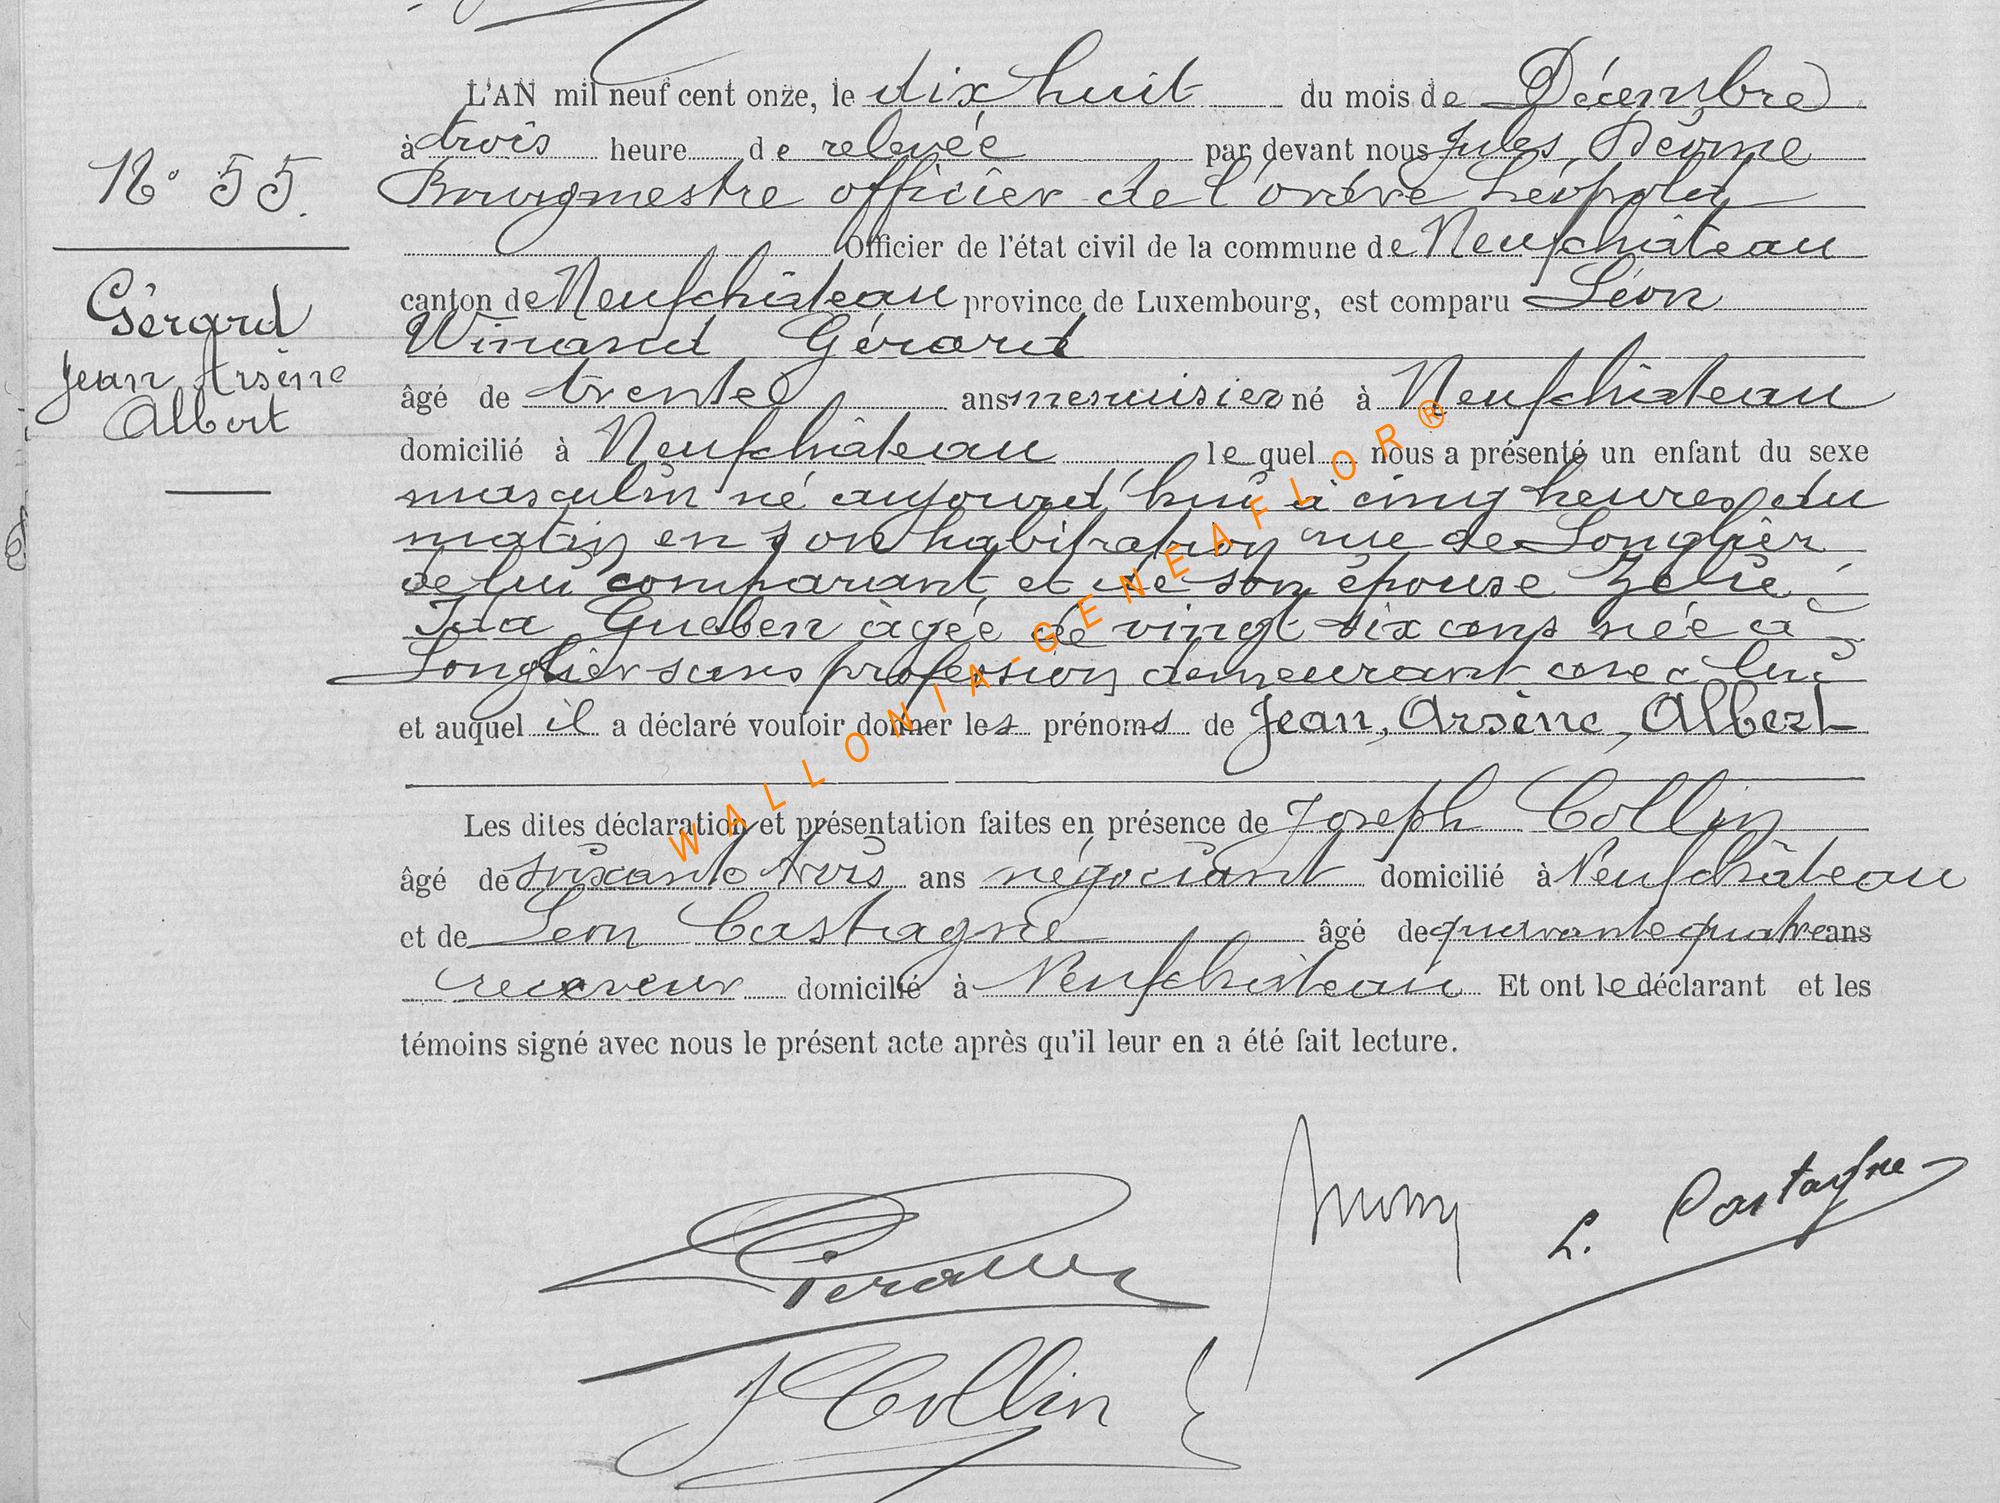 L'AN mil neuf cent onze, le dix huit du mois de Décembre
à trois heure de relevée par devant nous Jules
Bourgmestre officier de l'ordre Léopold
Officier de l'état civil de la commune de Neufchâteau
canton de Neufchâteau province de Luxembourg, est comparu Léon
Winand Gérard
âgé de trente ans menuisier né à Neufchâteau
domicilié à Neufchâteau lequel nous a présenté un enfant du sexe
masculin né aujourd'hui à cinq heures du
matin en son habitation rue de Longlier
de lui comparant et de son épouse Zélie
Ida Gueben âgée de vingt six ans née à
Longlier sans profession demeurant avec lui
et auquel il a déclaré vouloir donner les prénoms de Jean, Arsène, Albert
Les dites déclaration et présentation faites en présence de Joseph Collin
âgé de soixante trois ans négociant domicilié à Neufchâteau
et de Léon Castagne âgé de quarante quatre ans
receveur domicilié à Neufchâteau Et ont le déclarant et les
témoins signé avec nous le présent acte après qu'il leur en a été fait lecture.
N° 55.
Gérard
Jean Arsène
Albert
L. Castagne
J Collin
WALLONIA-GENEAFLOR®